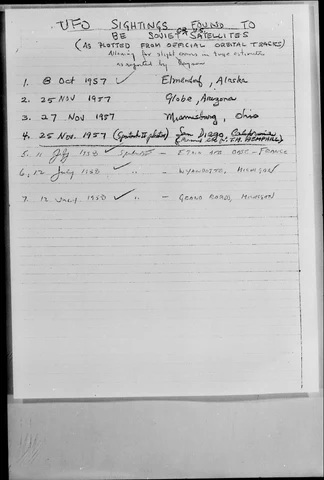 UFO SIGHTINGS FOUND TO
BE SOVIET SATELLITES
(AS PLOTTED FROM OFFICIAL ORBITAL TRACKS)
Allowing for slight errors in time estimates
as reported by
1. 8 Oct 1957 ✓ Elmendorf, Alaska
2. 25 NOV 1957 Globe, Arizona
3. 27 NOV 1957 Miamisburg, Ohio
4. 25 Nov. 1957 ✓ San Diego, California
5. 11 July 1958 ✓ - - FRANCE
6. 12 July 1958 ✓ " - WYANDOTTE, MICHIGAN
7. 12 July 1958 ✓ " - GRAND RAPIDS, MICHIGAN